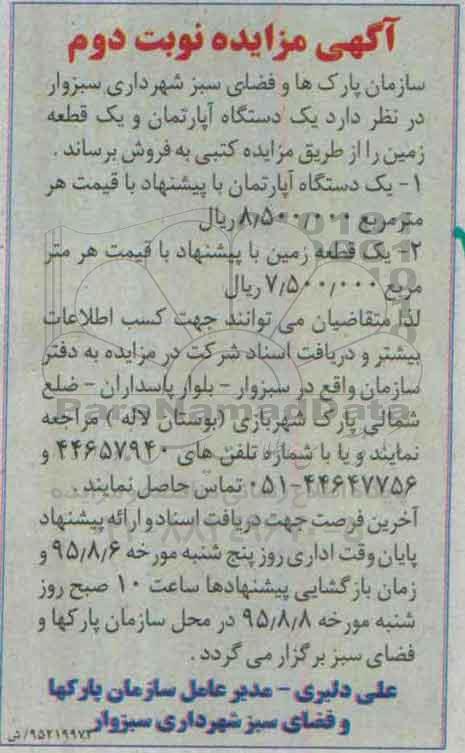 آگهی مزایده نوبت دوم
سازمان پارک ها و فضای سبز شهرداری سبزوار
در نظر دارد یک دستگاه آپارتمان و یک قطعه
زمین را از طریق مزایده کتبی به فروش برساند .
۱- یک دستگاه آپارتمان با پیشنهاد با قیمت هر
مترمربع ۸٫۵۰۰٫۰۰۰ ریال
۲- یک قطعه زمین با پیشنهاد با قیمت هر متر
مربع ۷٫۵۰۰٫۰۰۰ ریال
لذا متقاضیان می توانند جهت کسب اطلاعات
بیشتر و دریافت اسناد شرکت در مزایده به دفتر
سازمان واقع در سبزوار - بلوار پاسداران - ضلع
شمالی پارک شهربازی (بوستان لاله ) مراجعه
نمایند و یا با شماره تلفن های ۴۴۶۵۷۹۴۰ و
۰۵۱-۴۴۶۴۷۷۵۶ تماس حاصل نمایند .
آخرین فرصت جهت دریافت اسناد و ارائه پیشنهاد
پایان وقت اداری روز پنج شنبه مورخه ۹۵/۸/۶ و
زمان بازگشایی پیشنهادها ساعت ۱۰ صبح روز
شنبه مورخه ۹۵/۸/۸ در محل سازمان پارکها و
فضای سبز برگزار می گردد .
علی دلیری - مدیر عامل سازمان پارکها
و فضای سبز شهرداری سبزوار
۹۵۲۱۹۹۷۲/ش
ParsNamadData